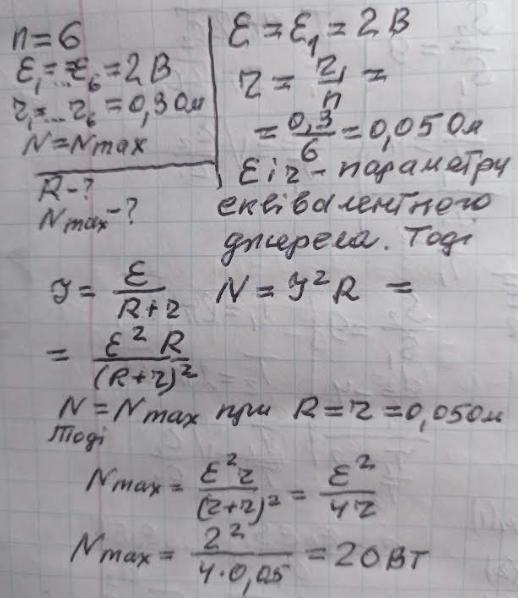 n=6
ℰ₁=...ℰ₆=2В
r₁=...r₆=0,3Ом
N=Nmax
R-?
Nmax-?
ℰ=ℰ₁=2В
r = r₁/n =
= 0,3/6 = 0,05Ом
ℰ і r - параметри
еквівалентного
джерела. Тоді
I = ℰ/(R+r) N = I²R =
= ℰ²R/(R+r)²
N=Nmax при R=r=0,05Ом
Тоді
Nmax = ℰ²r/(r+r)² = ℰ²/4r
Nmax = 2²/4·0,05 = 20Вт